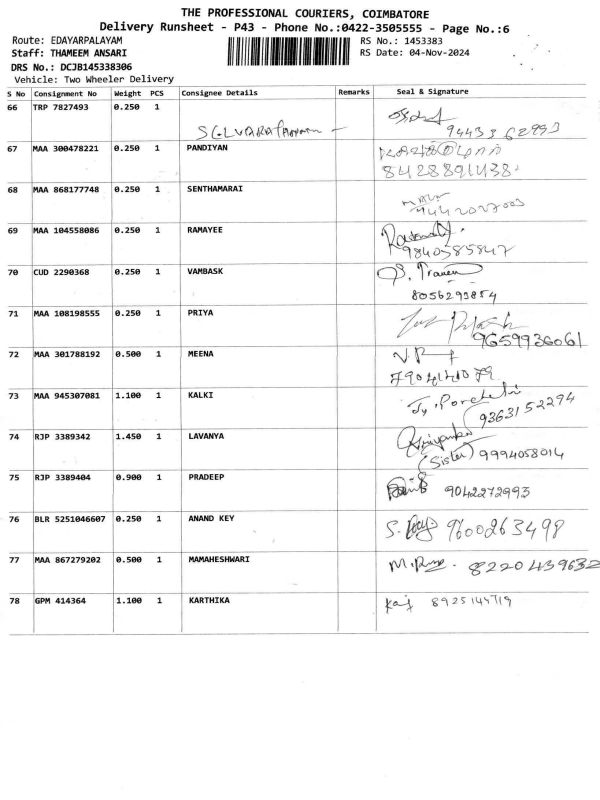 THE PROFESSIONAL COURIERS, COIMBATORE
Delivery Runsheet - P43 - Phone No.:0422-3505555 - Page No.:6
Route: EDAYARPALAYAM RS No.: 1453383
Staff: THAMEEM ANSARI RS Date: 04-Nov-2024
DRS No.: DCJB145338306
Vehicle: Two Wheeler Delivery
S No Consignment No Weight PCS Consignee Details Remarks Seal & Signature
66 TRP 7827493 0.250 1
67 MAA 300478221 0.250 1 PANDIYAN
8428891438
68 MAA 868177748 0.250 1 SENTHAMARAI
69 MAA 104558086 0.250 1 RAMAYEE
9840585847
70 CUD 2290368 0.250 1 VAMBASK
8056293854
71 MAA 108198555 0.250 1 PRIYA
9659936061
72 MAA 301788192 0.500 1 MEENA
73 MAA 945307081 1.100 1 KALKI
9363152294
74 RJP 3389342 1.450 1 LAVANYA Priyanka
(Sister) 9994058014
75 RJP 3389404 0.900 1 PRADEEP 9042272993
76 BLR 5251046607 0.250 1 ANAND KEY 9600263498
77 MAA 867279202 0.500 1 MAMAHESHWARI 8220439632
78 GPM 414364 1.100 1 KARTHIKA